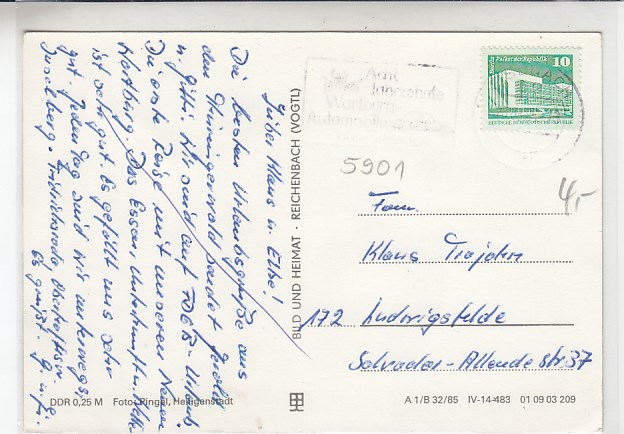 Lieber Klaus u. Elke!
Die besten Urlaubsgrüße aus
dem Thüringerwald sendet
u. Wir sind auf FDGB-Urlaub.
Die erste Reise mit unserem Neuen
Wartburg. Das Essen, Unterkunft
ist sehr gut. Es gefällt uns sehr
gut. Jeden Tag sind wir unterwegs,
Inselberg, Friedrichroda
Es grüßt
BILD UND HEIMAT · REICHENBACH (VOGTL)
Jahrzehnte
Wartburg
Automobile
Berlin Palast der Republik 10
DEUTSCHE DEMOKRATISCHE REPUBLIK
5901
4,-
Fam.
Klaus Trojahn
172 Ludwigsfelde
Salvador-Allende str 37
DDR 0,25 M Foto: Ringel, Heiligenstadt
A 1/B 32/85 IV-14-483 01 09 03 209